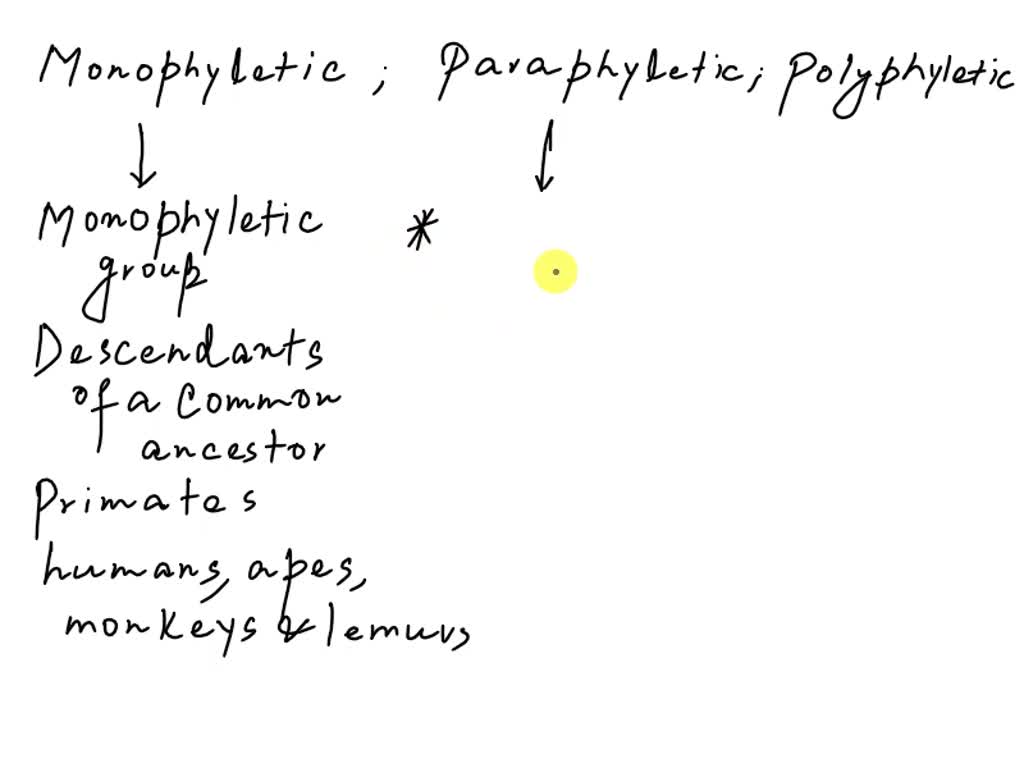 Monophyletic ; Paraphyletic ; Polyphyletic
Monophyletic *
group
Descendants
of a Common
ancestor
Primates
humans, apes,
monkeys & lemurs